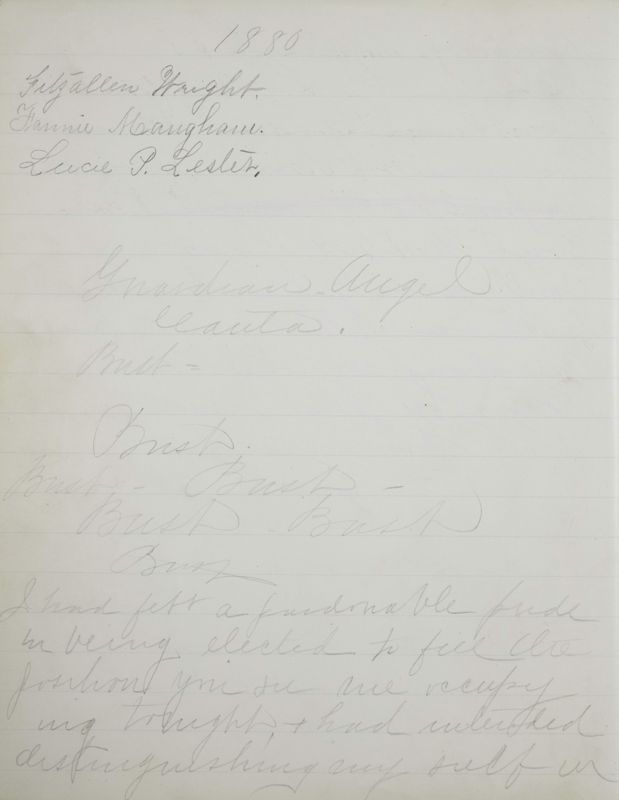 1880
Fitzallen Wright.
Fannie Mangham.
Lucie P. Lester.
Guardian Angel
Canta.
Bust =
Bust.
Bust - Bust -
Bust Bust
Bust
I had felt a pardonable pride
in being elected to fill the
position you see me occupy
ing tonight, & had intended
distinguishing my self in